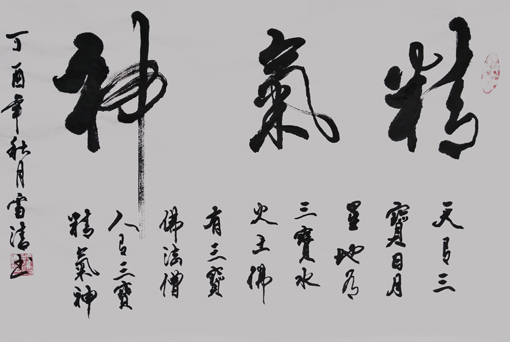 精氣神
天有三
寶日月
星地有
三寶水
火土佛
有三寶
佛法僧
人有三寶
精氣神
丁酉年秋月雪书